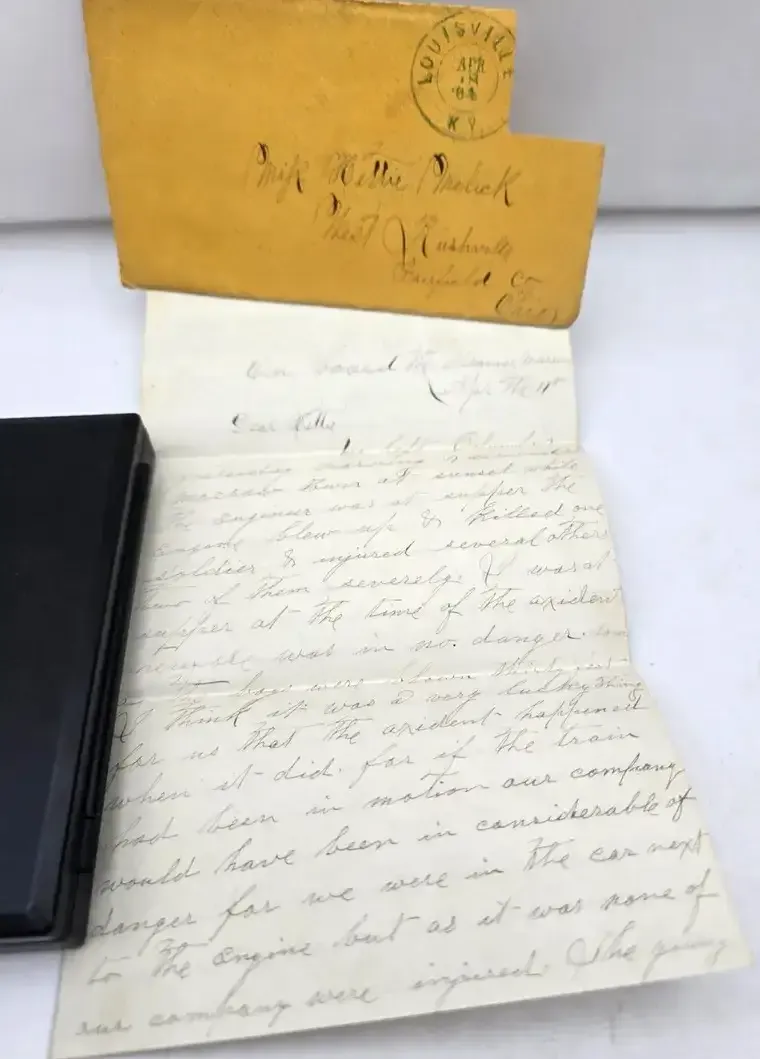 LOUISVILLE
APR
'64
KY.
Miss Mettie
West Rushville
Fairfield Co
On board the
Apr the 11th
Dear
left
yesterday morning
town at sunset while
the engineer was at supper the
engine blew up & killed one
soldier & injured several others
two of them severely. I was at
supper at the time of the axident
was in no danger.
boys were blown thirty feet
I think it was a very luckey thing
for us that the axident happened
when it did. for if the train
had been in motion our company
would have been in considerable of
danger for we were in the car next
to the engine but as it was none of
our company were injured. The young